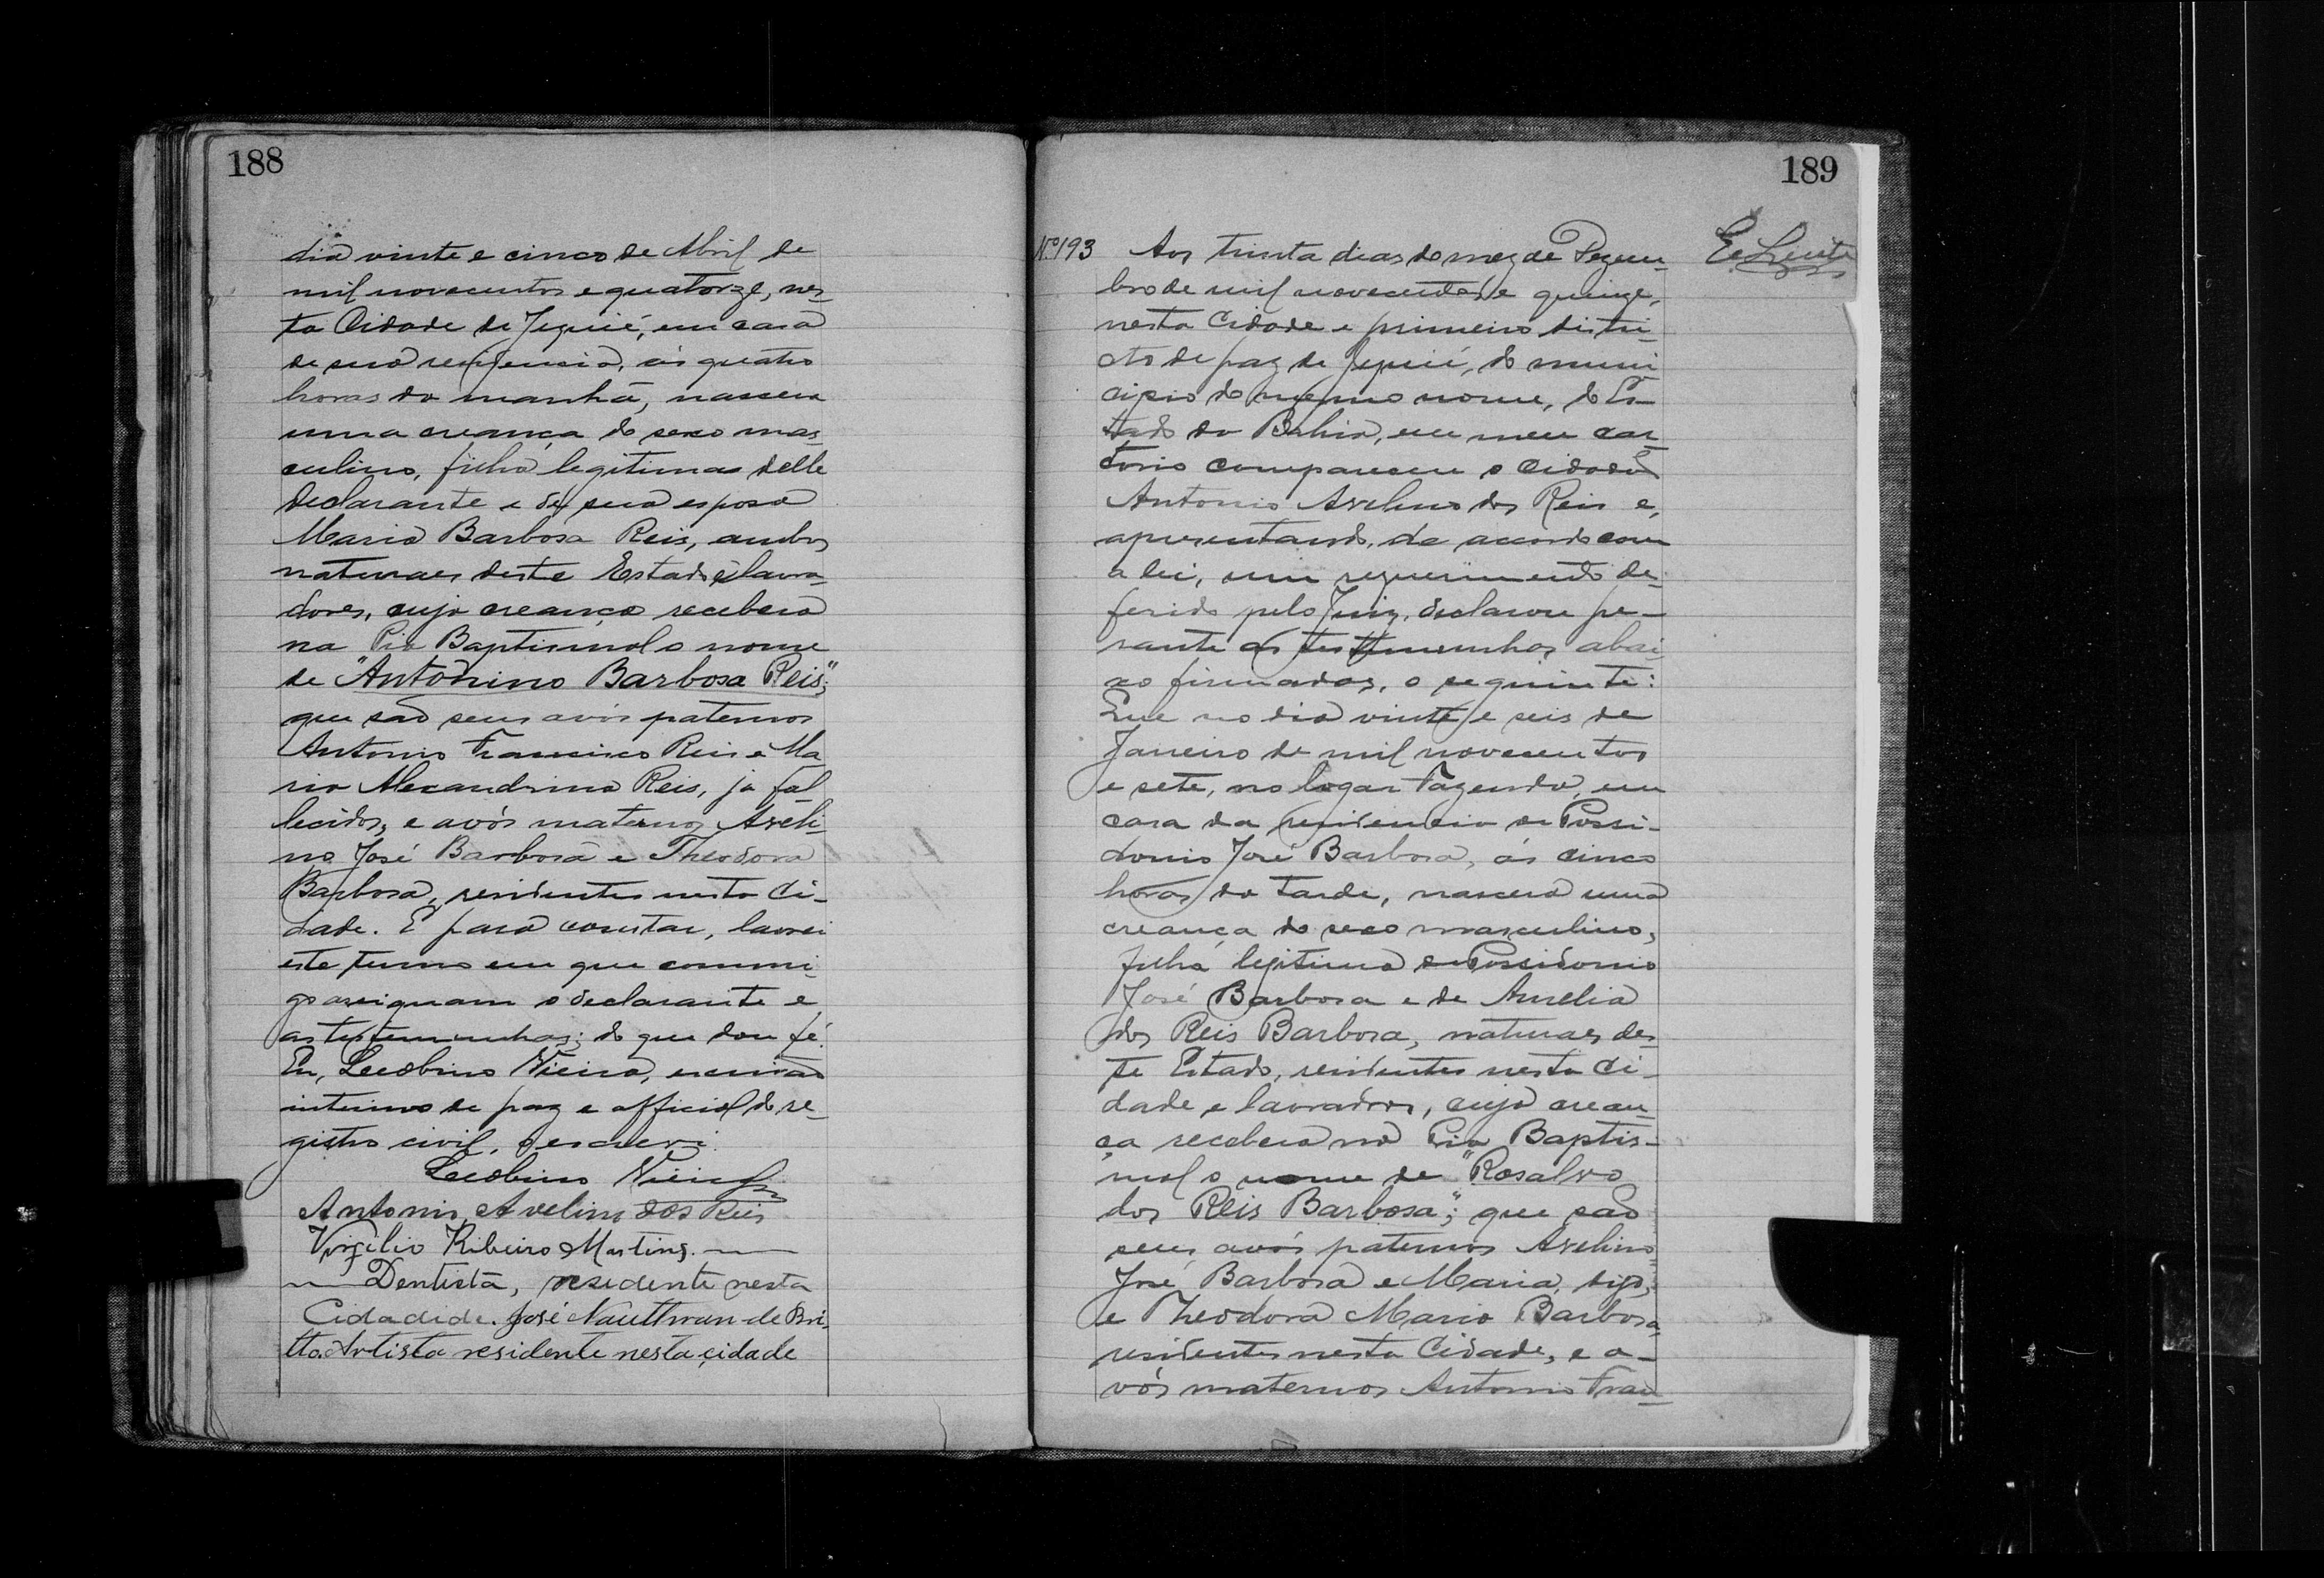 188
dia vinte e cinco de Abril de
mil novecentos e quatorze, nes-
ta Cidade de Jequié, em casa
de sua residencia, ás quatro
horas da manhã, nascera
uma creança do sexo mas-
culino, filha legitima delle
declarante e de sua esposa
Maria Barbosa Reis, ambos
naturaes deste Estado e lavra-
dores, cuja creança receberá
na Pia Baptismal o nome
de "Antonino Barbosa Reis";
que são seus avós paternos
Antonio Francisco Reis e Ma-
ria Alexandrina Reis, já fal-
lecidos, e avós maternos Aveli-
no José Barbosa e Theodora
Barbosa, residentes nesta Ci-
dade. E para constar, lavrei
este termo em que commi-
go assignam o declarante e
as testemunhas; do que dou fé.
Eu, Leobino Vieira, escrivão
interino de paz e official do re-
gistro civil, o escrevi.
Leobino Vieira
Antonio Avelino dos Reis
Virgilio Ribeiro Martins.
Dentista, residente nesta
Cidadide. José Nauttman de Bri-
tto. Artista residente nesta cidade
189
Nº 193 Aos trinta dias do mez de Dezem-
bro de mil novecentos e quinze,
nesta Cidade e primeiro distri-
cto de paz de Jequié, do muni-
cipio do mesmo nome, do Es-
tado da Bahia, em meu car-
torio compareceu o Cidadão
Antonio Avelino dos Reis e,
apresentando, de accordo com
a lei, um requerimento de-
ferido pelo Juiz, declarou pe-
rante as testemunhas abai-
xo firmadas, o seguinte:
Que no dia vinte e seis de
Janeiro de mil novecentos
e sete, no logar Fazenda, em
casa da residencia de Possi-
donio José Barbosa, ás cinco
horas da tarde, nascera uma
creança do sexo masculino,
filha legitima de Possidonio
José Barbosa e de Aurelia
dos Reis Barbosa, naturaes des-
te Estado, residentes nesta Ci-
dade e lavradores, cuja crean-
ça receberá na Pia Baptis-
mal o nome de "Rosalvo
dos Reis Barbosa"; que são
seus avós paternos Avelino
José Barbosa e Maria, digo,
e Theodora Maria Barbosa,
residentes nesta Cidade, e a-
vós maternos Antonio Fran-